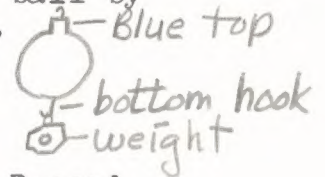 Blue top
bottom hook
weight